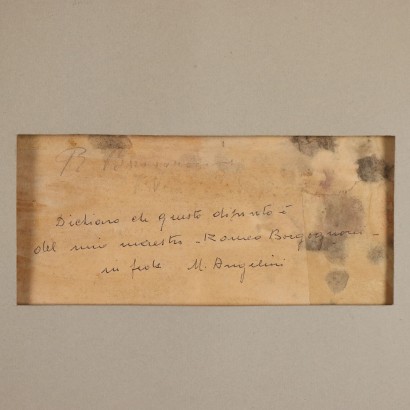 Dichiaro che questo dipinto è
del mio maestro - Romeo Borgognoni -
in fede M. Angelini